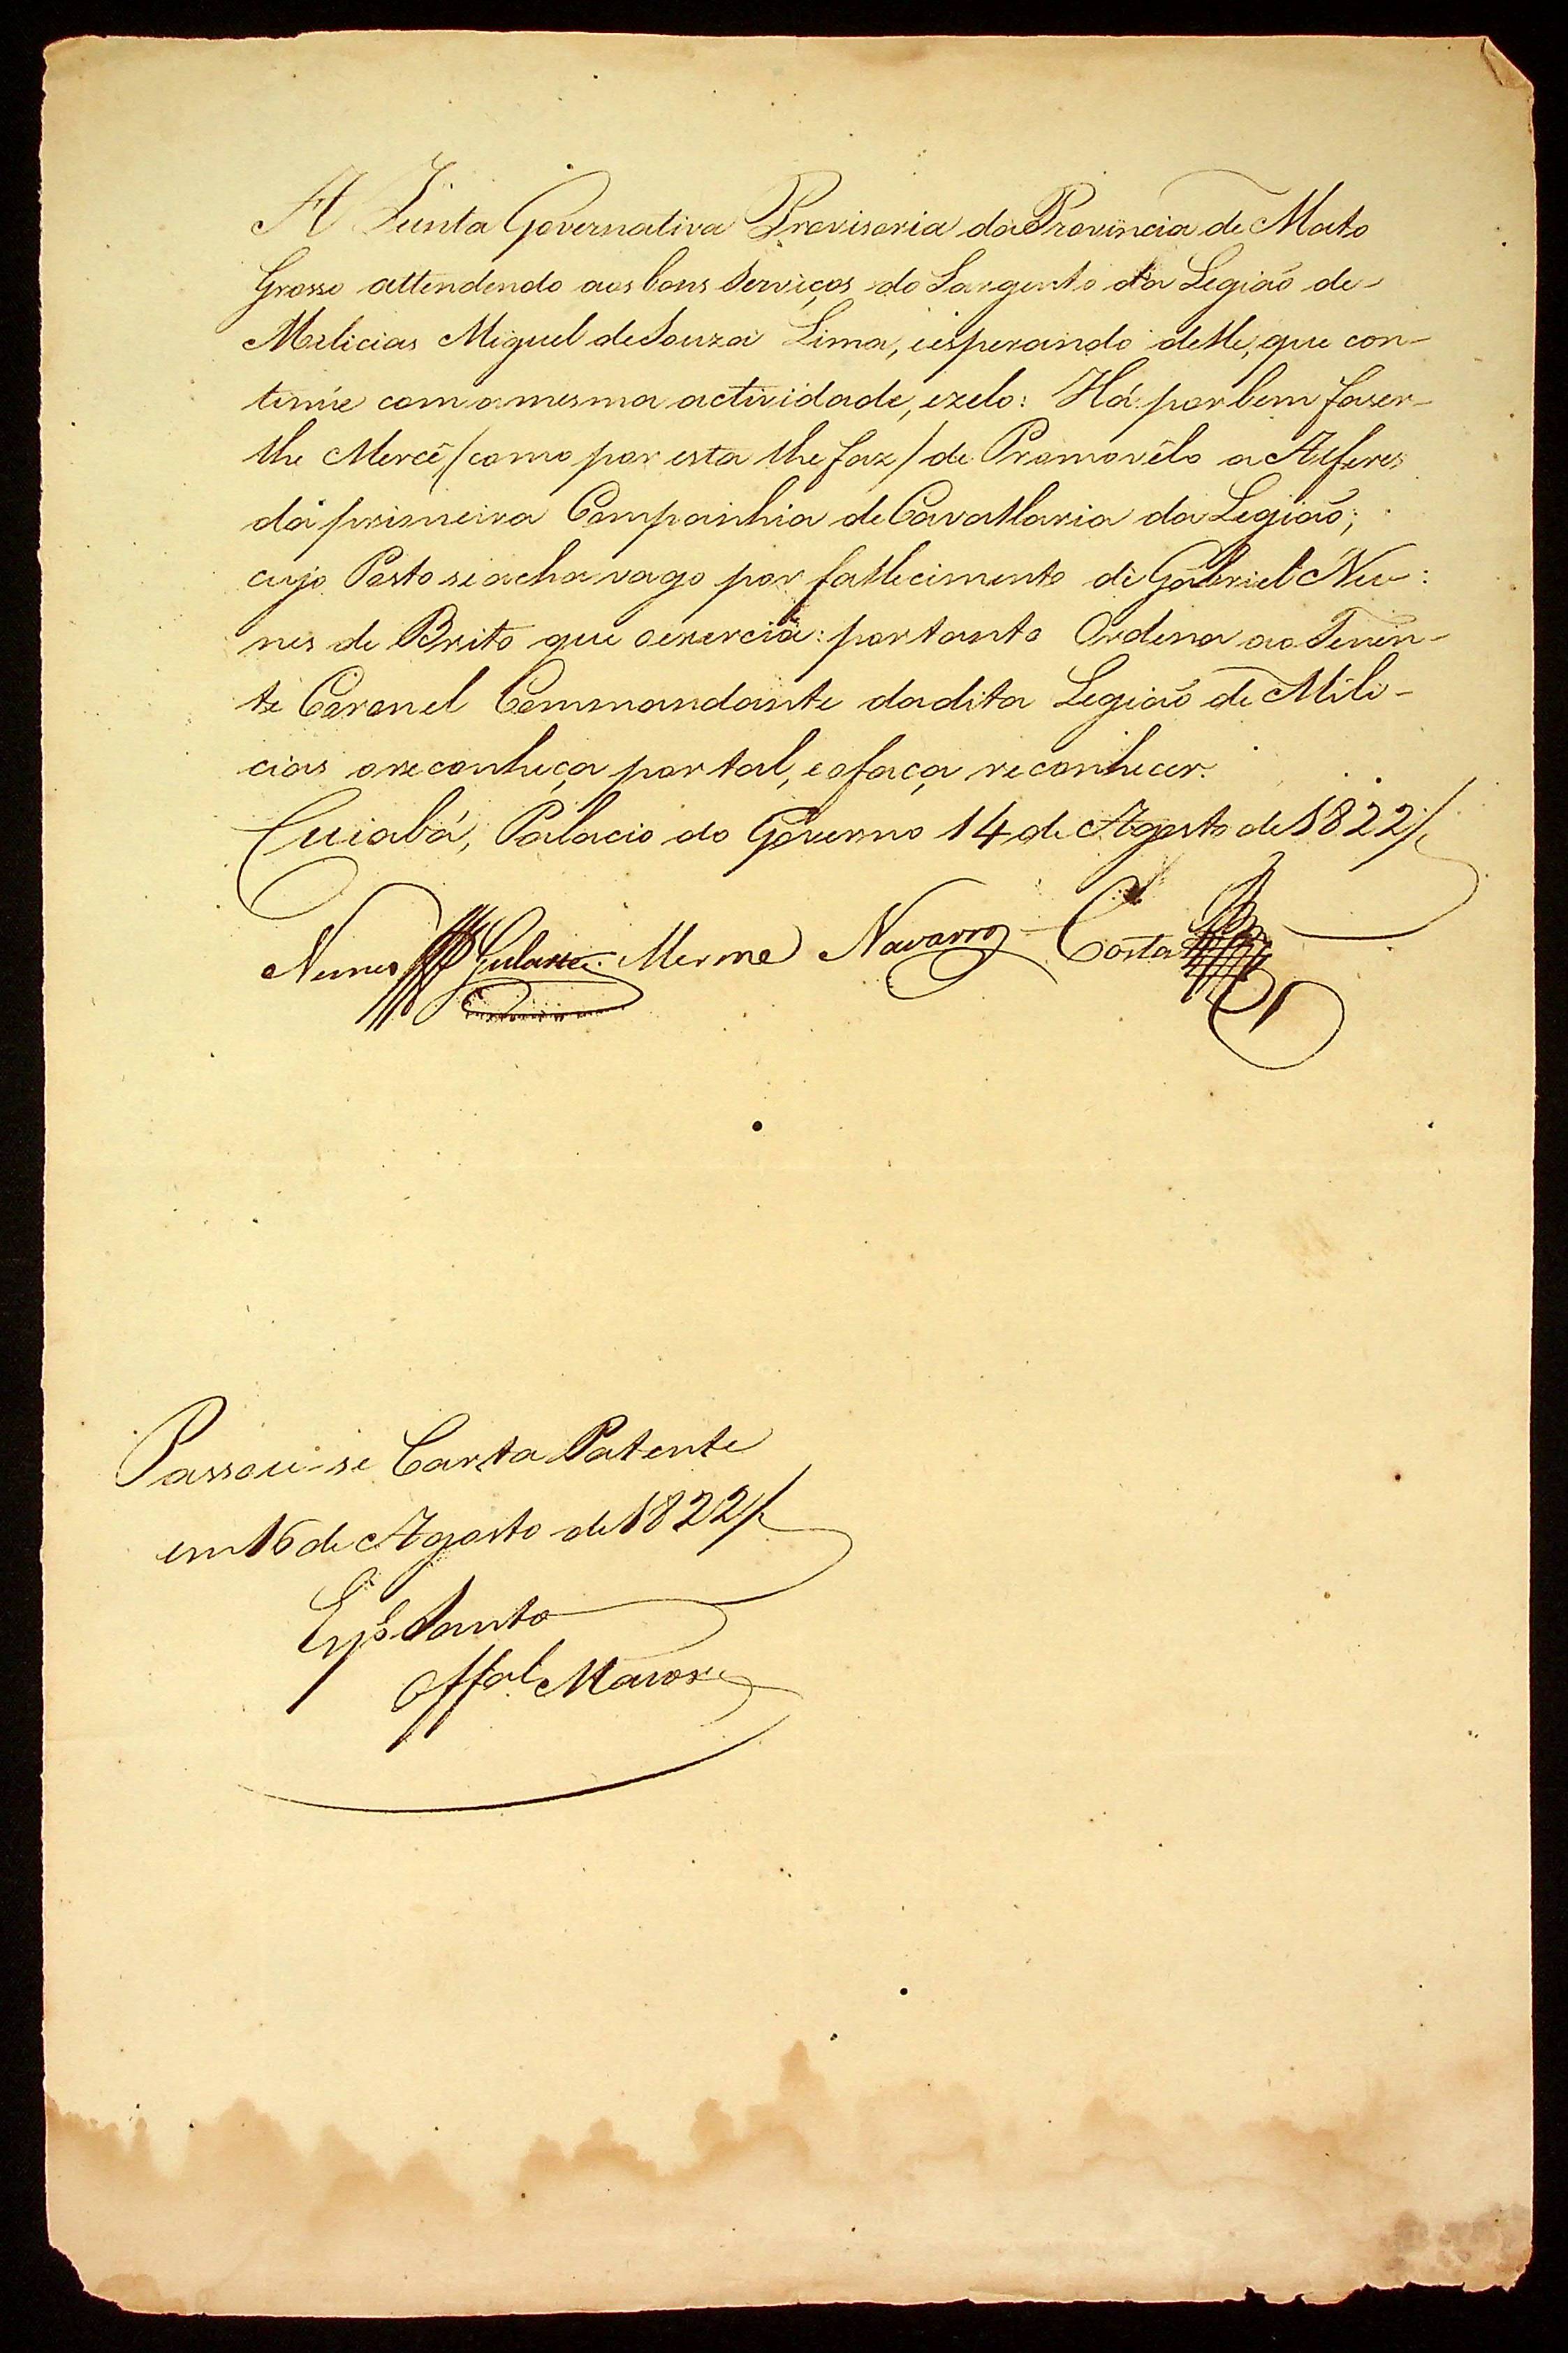 A Junta Governativa Provisoria da Provincia de Mato
Grosso attendendo aos bons Serviços do Sargento da Legiaõ de
Milicias Miguel de Souza Lima, e esperando delle, que con-
tinúe com a mesma actividade, e zelo: Há por bem faser-
lhe Mercê (como por esta lhe faz) de Promovêlo a Alferes
da primeira Companhia de Cavallaria da Legiaõ;
cujo Posto se acha vago por fallecimento de Gabriel Nu-
nes de Brito que o exercia: portanto Ordena ao Tenen-
te Coronel Commandante da dita Legiaõ de Mili-
cias o reconheça por tal, e o faça reconhecer.
Cuiabá, Palacio do Governo 14 de Agosto de 1822/
Nunes Gularte Merme Navarro Costa
Passou-se Carta Patente
em 16 de Agosto de 1822/
Espº Santo
Offal Maior